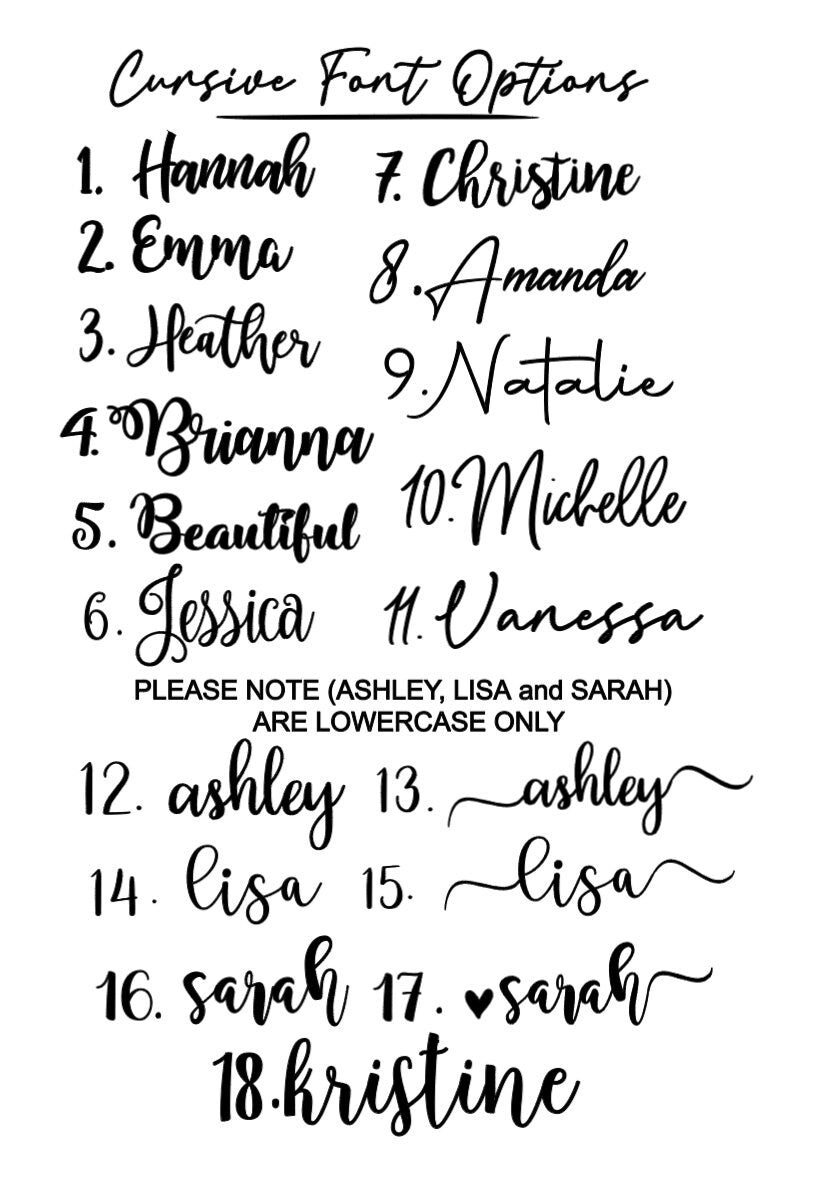 Cursive Font Options
1. Hannah
2. Emma
3. Heather
4. Brianna
5. Beautiful
6. Jessica
7. Christine
8. Amanda
9. Natalie
10. Michelle
11. Vanessa
PLEASE NOTE (ASHLEY, LISA and SARAH)
ARE LOWERCASE ONLY
12. ashley 13. ashley
14. lisa 15. lisa
16. sarah 17. ♥sarah
18. kristine